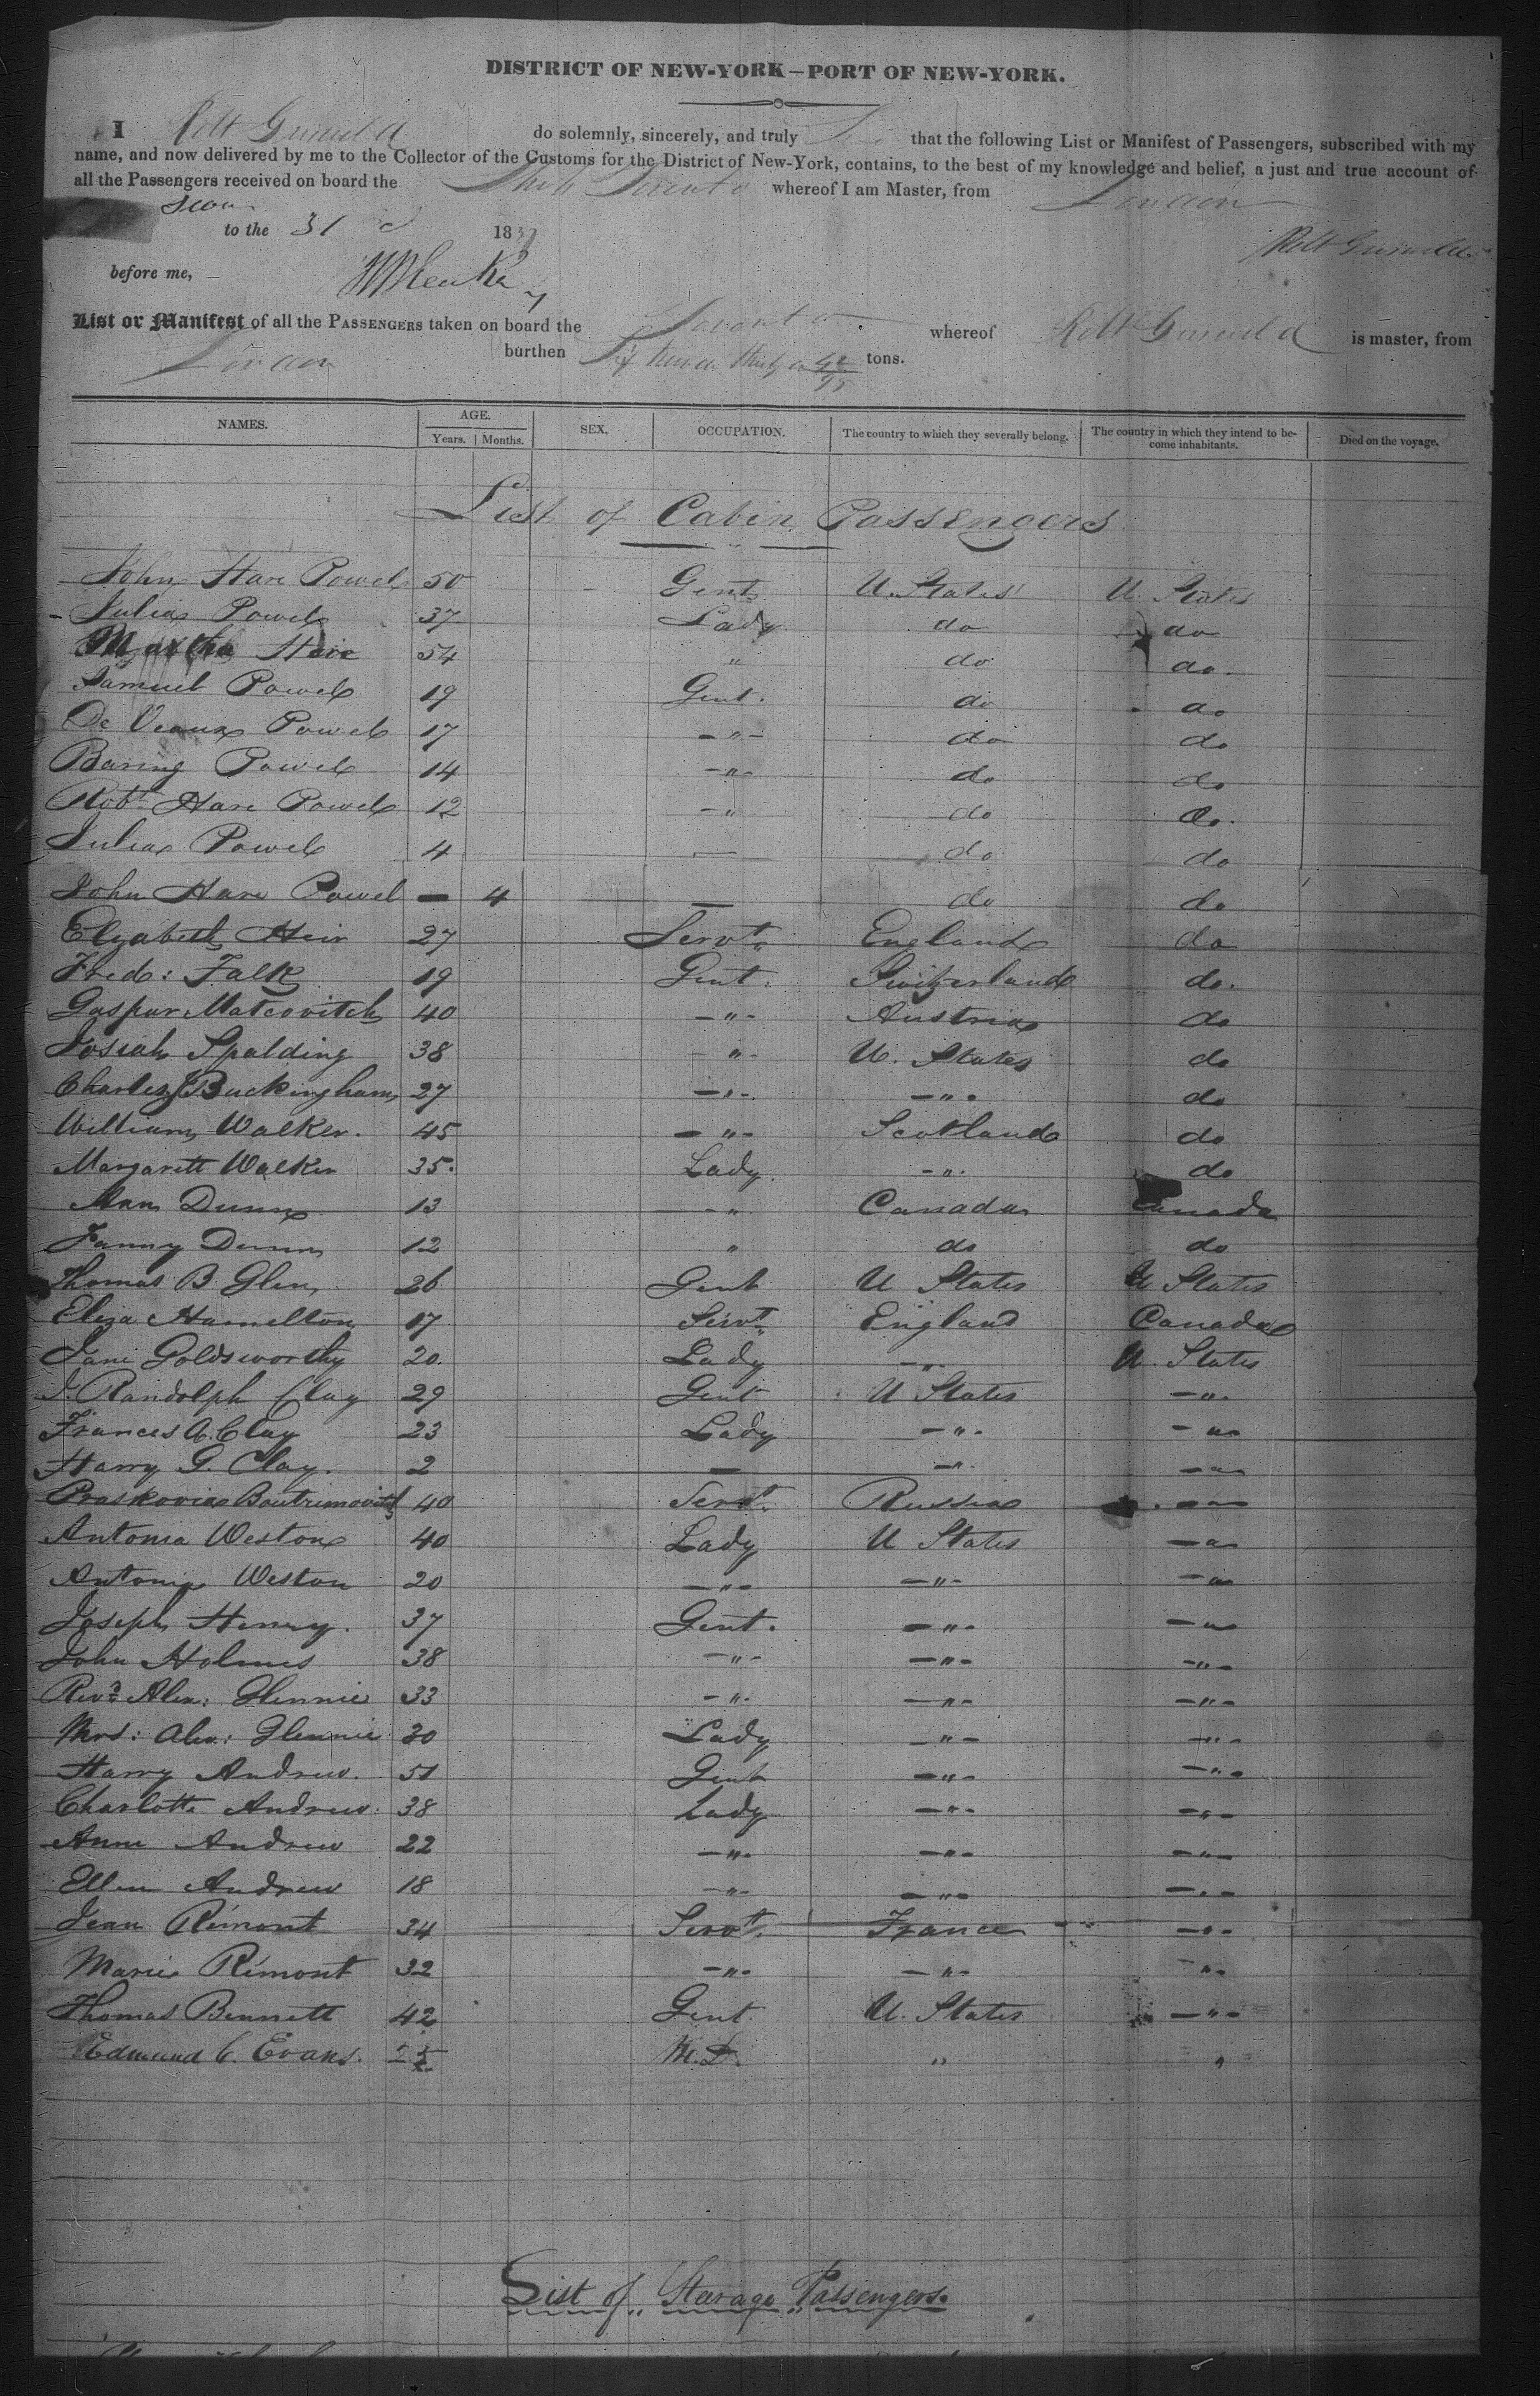 DISTRICT OF NEW-YORK—PORT OF NEW-YORK.
I Robt Griswold do solemnly, sincerely, and truly that the following List or Manifest of Passengers, subscribed with my
name, and now delivered by me to the Collector of the Customs for the District of New-York, contains, to the best of my knowledge and belief, a just and true account of
all the Passengers received on board the Ship Toronto whereof I am Master, from London
to the 31 183
Robt Griswold
before me,
List or Manifest of all the PASSENGERS taken on board the Toronto whereof Robt Griswold is master, from
London burthen tons.
NAMES. AGE. Years. Months. SEX. OCCUPATION. The country to which they severally belong. The country in which they intend to become inhabitants. Died on the voyage.
List of Cabin Passengers
John Hare Powel 50 Gent. U. States U. States
Julia Powel 37 Lady do do
Martha Hare 54 " do do.
Samuel Powel 19 Gent. do do
De Veaux Powel 17 -"- do do
Baring Powel 14 -"- do do
Robt Hare Powel 12 -" do do.
Julia Powel 4 — do do
John Hare Powel — 4 — do do
Elizabeth Heir 27 Servt. England do
Fred: Falk 19 Gent. Switzerland do.
Gaspar Matcovitch 40 -"- Austria do
Josiah Spalding 38 -"- U. States do
Charles J Buckingham 27 -"- -"- do
William Walker. 45 -"- Scotland do
Margarett Walker 35. Lady. -"- do
Ann Dunn 13 -" Canada Canada
Fanny Dunn 12 " do do
Thomas B Glen 26 Gent U States U States
Eliza Hamelton 17 Servt. England Canada
Jane Goldsworthy 20. Lady -"- U. States
J. Randolph Clay 29 Gent U States -"-
Frances A. Clay 23 Lady -"- -"-
Harry G. Clay. 2 — -"- -"-
Praskovia Boutrimovitch 40 Servt. Russia -"-
Antonia Weston 40 Lady U States -"-
Antonia Weston 20 -"- -"- -"-
Joseph Henry. 37 Gent. -"- -"-
John Holmes 38 -"- -"- -"-
Revd. Alex: Glennie 33 -"- -"- -"-
Mrs: Alex: Glennie 30 Lady -"- -"-
Harry Andrew. 51 Gent -"- -"-
Charlotte Andrew. 38 Lady -"- -"-
Anne Andrew 22 -"- -"- -"-
Ellen Andrew 18 -"- -"- -"-
Jean Rémont 34 Servt. France -"-
Marie Rémont 32 -"- -"- -"-
Thomas Bennett 42 Gent. U. States -"-
Edmund C. Evans. 25 M.D. " "
List of Stearage Passengers.